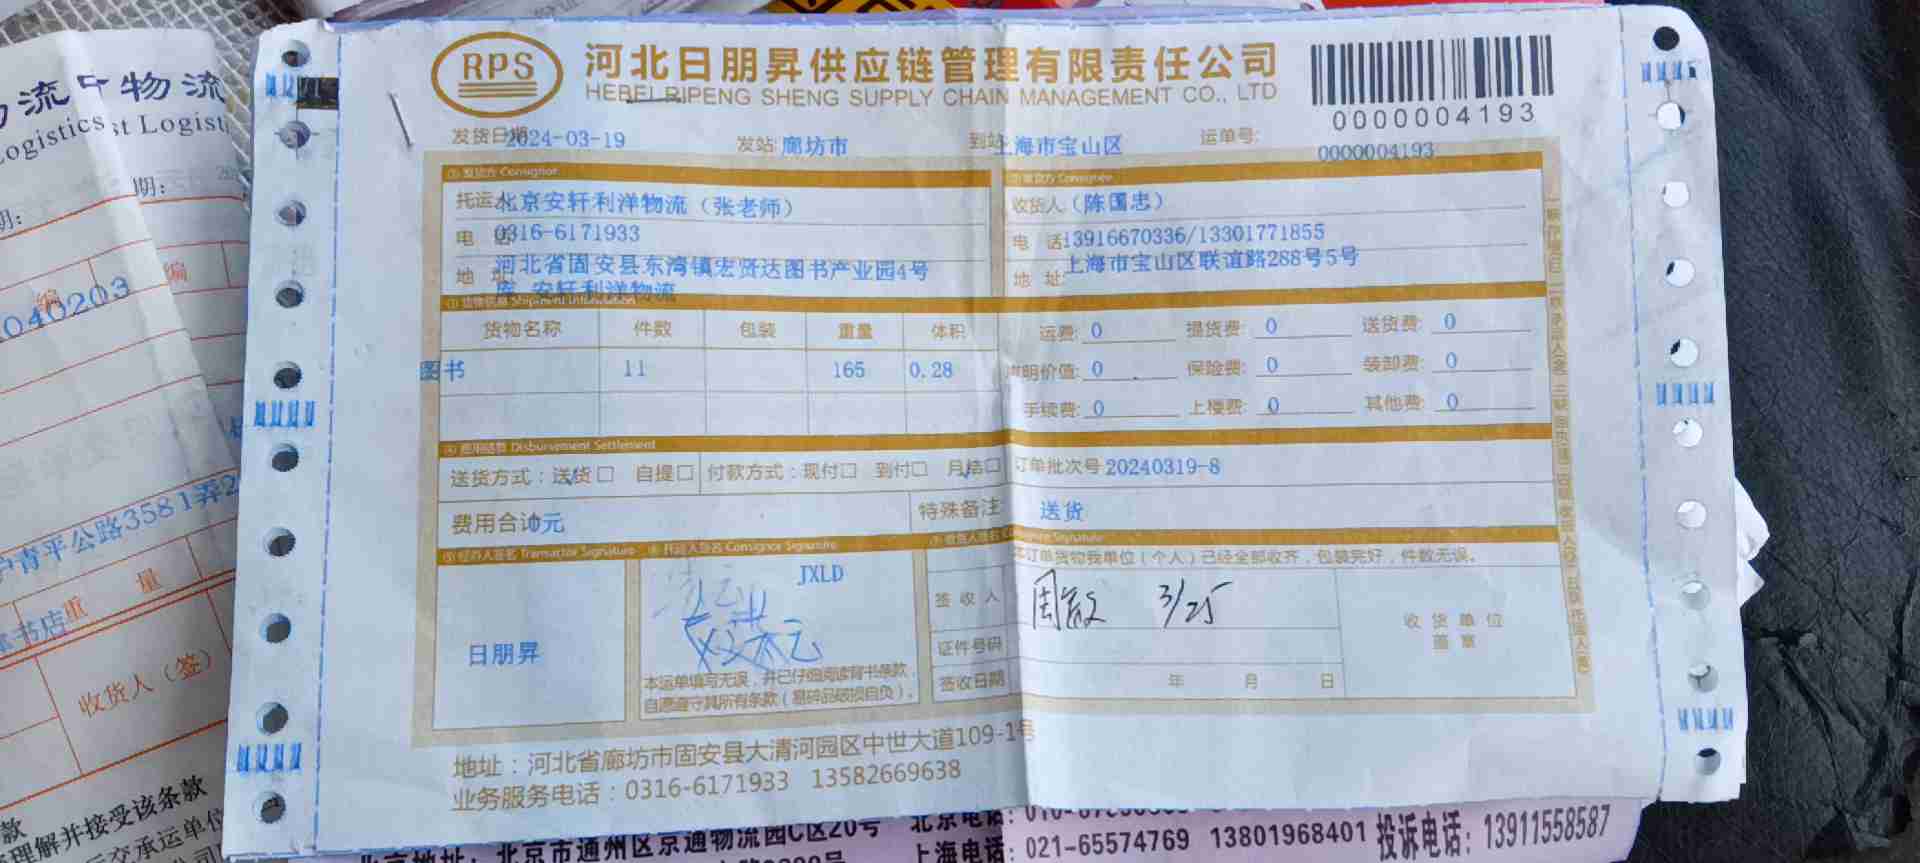 RPS
河北日朋昇供应链管理有限责任公司
HEBEI RIPENG SHENG SUPPLY CHAIN MANAGEMENT CO., LTD
0000004193
发货日期 2024-03-19 发站: 廊坊市 到站 上海市宝山区 运单号: 0000004193
托运 北京安轩利洋物流（张老师）
电 话 0316-6171933
地 址 河北省固安县东湾镇宏贤达图书产业园4号
库 安轩利洋物流
收货人（陈国忠）
电 话 13916670336/13301771855
地 址 上海市宝山区联谊路288号5号
货物名称 件数 包装 重量 体积
图书 11 165 0.28
运费: 0 提货费: 0 送货费: 0
声明价值: 0 保险费: 0 装卸费: 0
手续费: 0 上楼费: 0 其他费: 0
Disbursement Settlement
送货方式：送货□ 自提□ 付款方式：现付□ 到付□ 月结□ 订单批次号 20240319-8
费用合计 0元 特殊备注 送货
经办人签名 Transactor Signature 托运人签名 Consignor Signature
本订单货物我单位（个人）已经全部收齐，包装完好，件数无误。
日朋昇
JXLD
签收人 周敏 3/25
收货单位
盖章
证件号码
签收日期 年 月 日
本运单填写无误，并已仔细阅读背书条款，
自愿遵守其所有条款（易碎品破损自负）。
地址：河北省廊坊市固安县大清河园区中世大道109-1号
业务服务电话：0316-6171933 13582669638
物流
中物流
Logistics
st Logist
期:
编
040203
沪青平公路3581弄2
重 量
书店
收货人（签）
款
理解并接受该条款
交承运单位
公司
北京市通州区京通物流园C区20号
北京电话:
上海电话: 021-65574769 13801968401 投诉电话: 13911558587